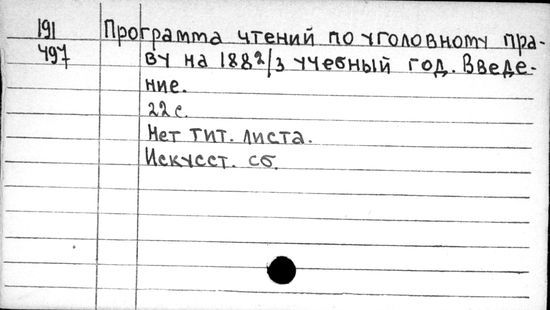 191 Программа чтений по уголовному пра-
497 ву на 1882/3 учебный год. Введе-
ние.
22 с.
Нет тит. листа.
Искусст. сб.